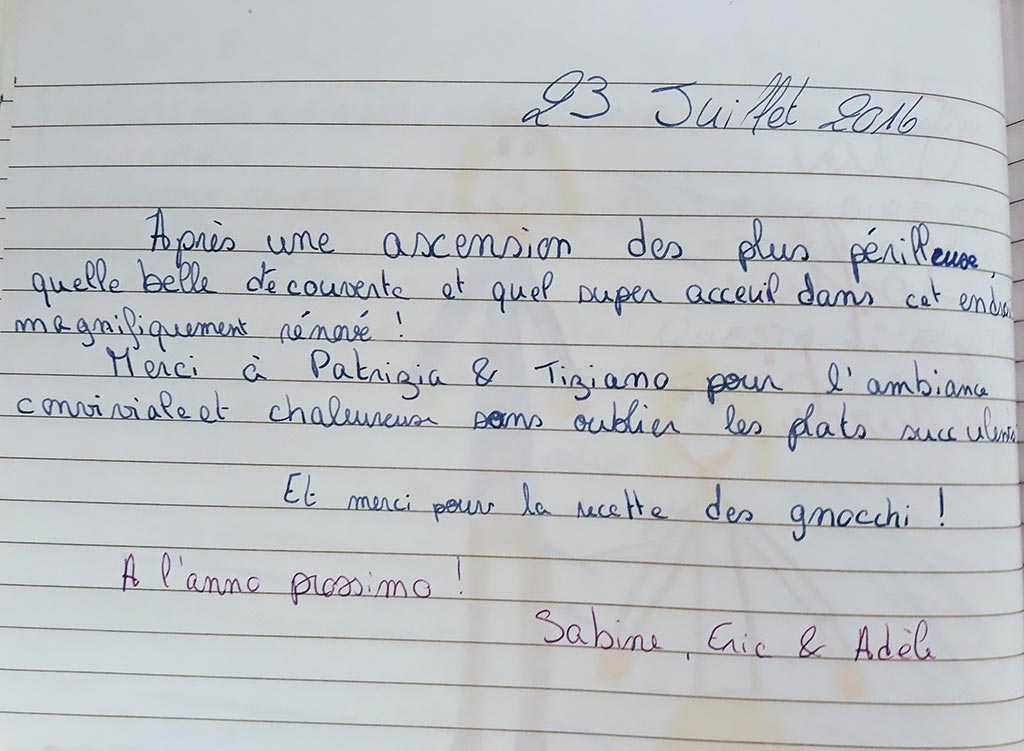 23 Juillet 2016
Après une ascension des plus périlleuse,
quelle belle découverte et quel super acceuil dans cet endroi
magnifiquement rénové !
Merci à Patrizia & Tiziano pour l'ambiance
conviviale et chaleureuse sans oublier les plats succulents
Et merci pour la recette des gnocchi !
A l'anno prossimo !
Sabine, Eric & Adèle